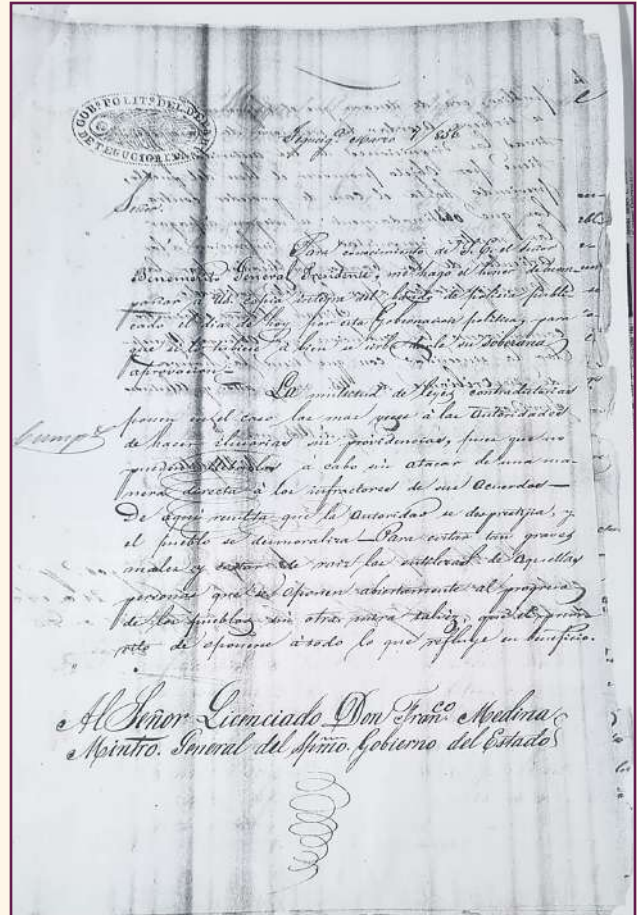 GOBº POLITº DEL DEP
DE TEGUCIGALPA
Tegucigª Marzo 856
Señor.
Para conocimiento de S. E. el señor
Benemerito General Presidente, me hago el honor de acom
pañar á Ud. copia integra del bando de policia publi-
cado el dia de hoy por esta Gobernacion politica, para
que si lo tubiere á bien se sirva darle su soberana
aprovacion—
La multitud de leyes contradictorias
ponen en el caso las mas veces á las Autoridades
de hacer ilusorias sus providencias, pues que no
pueden llebarlas a cabo sin atacar de una ma-
nera directa á los infractores de sus Acuerdos—
De aqui resulta que la Autoridad se desprestijia, y
el pueblo se desmoraliza—Para evitar tan graves
males y cortar de raiz las de aquellas
personas que se oponen abiertamente al progreso
de los pueblos sin otra mira talvez, que el
rito de oponerse á todo lo que refluye en beneficio.
Cumpº
Al Señor Licenciado Don Franco Medina
Mintro. General del Spmo. Gobierno del Estado